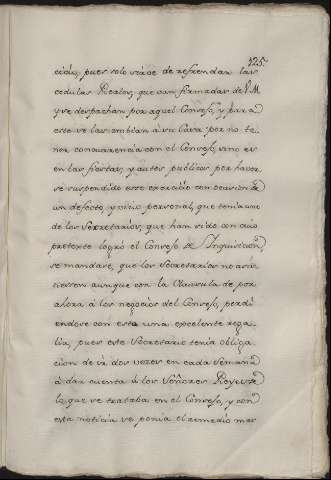 125.
cicio, pues solo sirve de refrendar las
cedulas Reales, que van firmadas de V.M.
y se despachan por aquel Consejo, y para
esto se las embian à su Casa por no te-
ner concurrencia con el Consejo, sino es
en las fiestas, y autos publicos, por haver-
se suspendido este exercicio con ocasion de
un defecto, y vicio personal, que tenia uno
de los Secretarios, que han sido con cuio
pretexto logrò el Consejo de Inquisicion
se mandase, que los Secretarios no asis-
tiesen aunque con la Clausula de por
ahora à los negocios del Consejo, perdi-
endose con esta una excelente rega-
lia, pues este Secretario tenia obliga-
cion de ir dos vezes en cada semana
à dar cuenta à los Señores Reyes de
lo que se trataba en el Consejo, y con
esta noticia se ponia el remedio mas